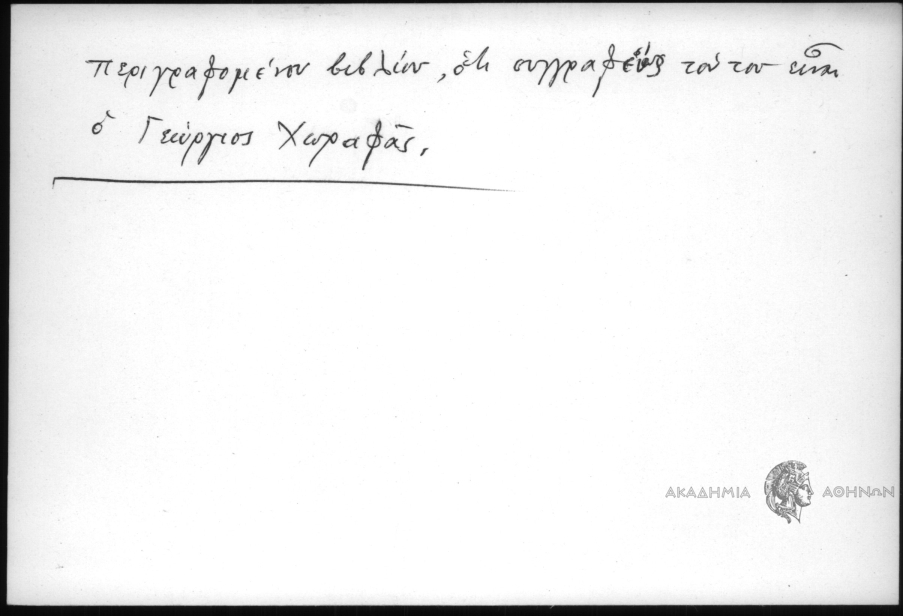 περιγραφομένου βιβλίου, ὅτι συγγραφεύς τούτου εἶναι
ὁ Γεώργιος Χωραφᾶς.
ΑΚΑΔΗΜΙΑ ΑΘΗΝΩΝ